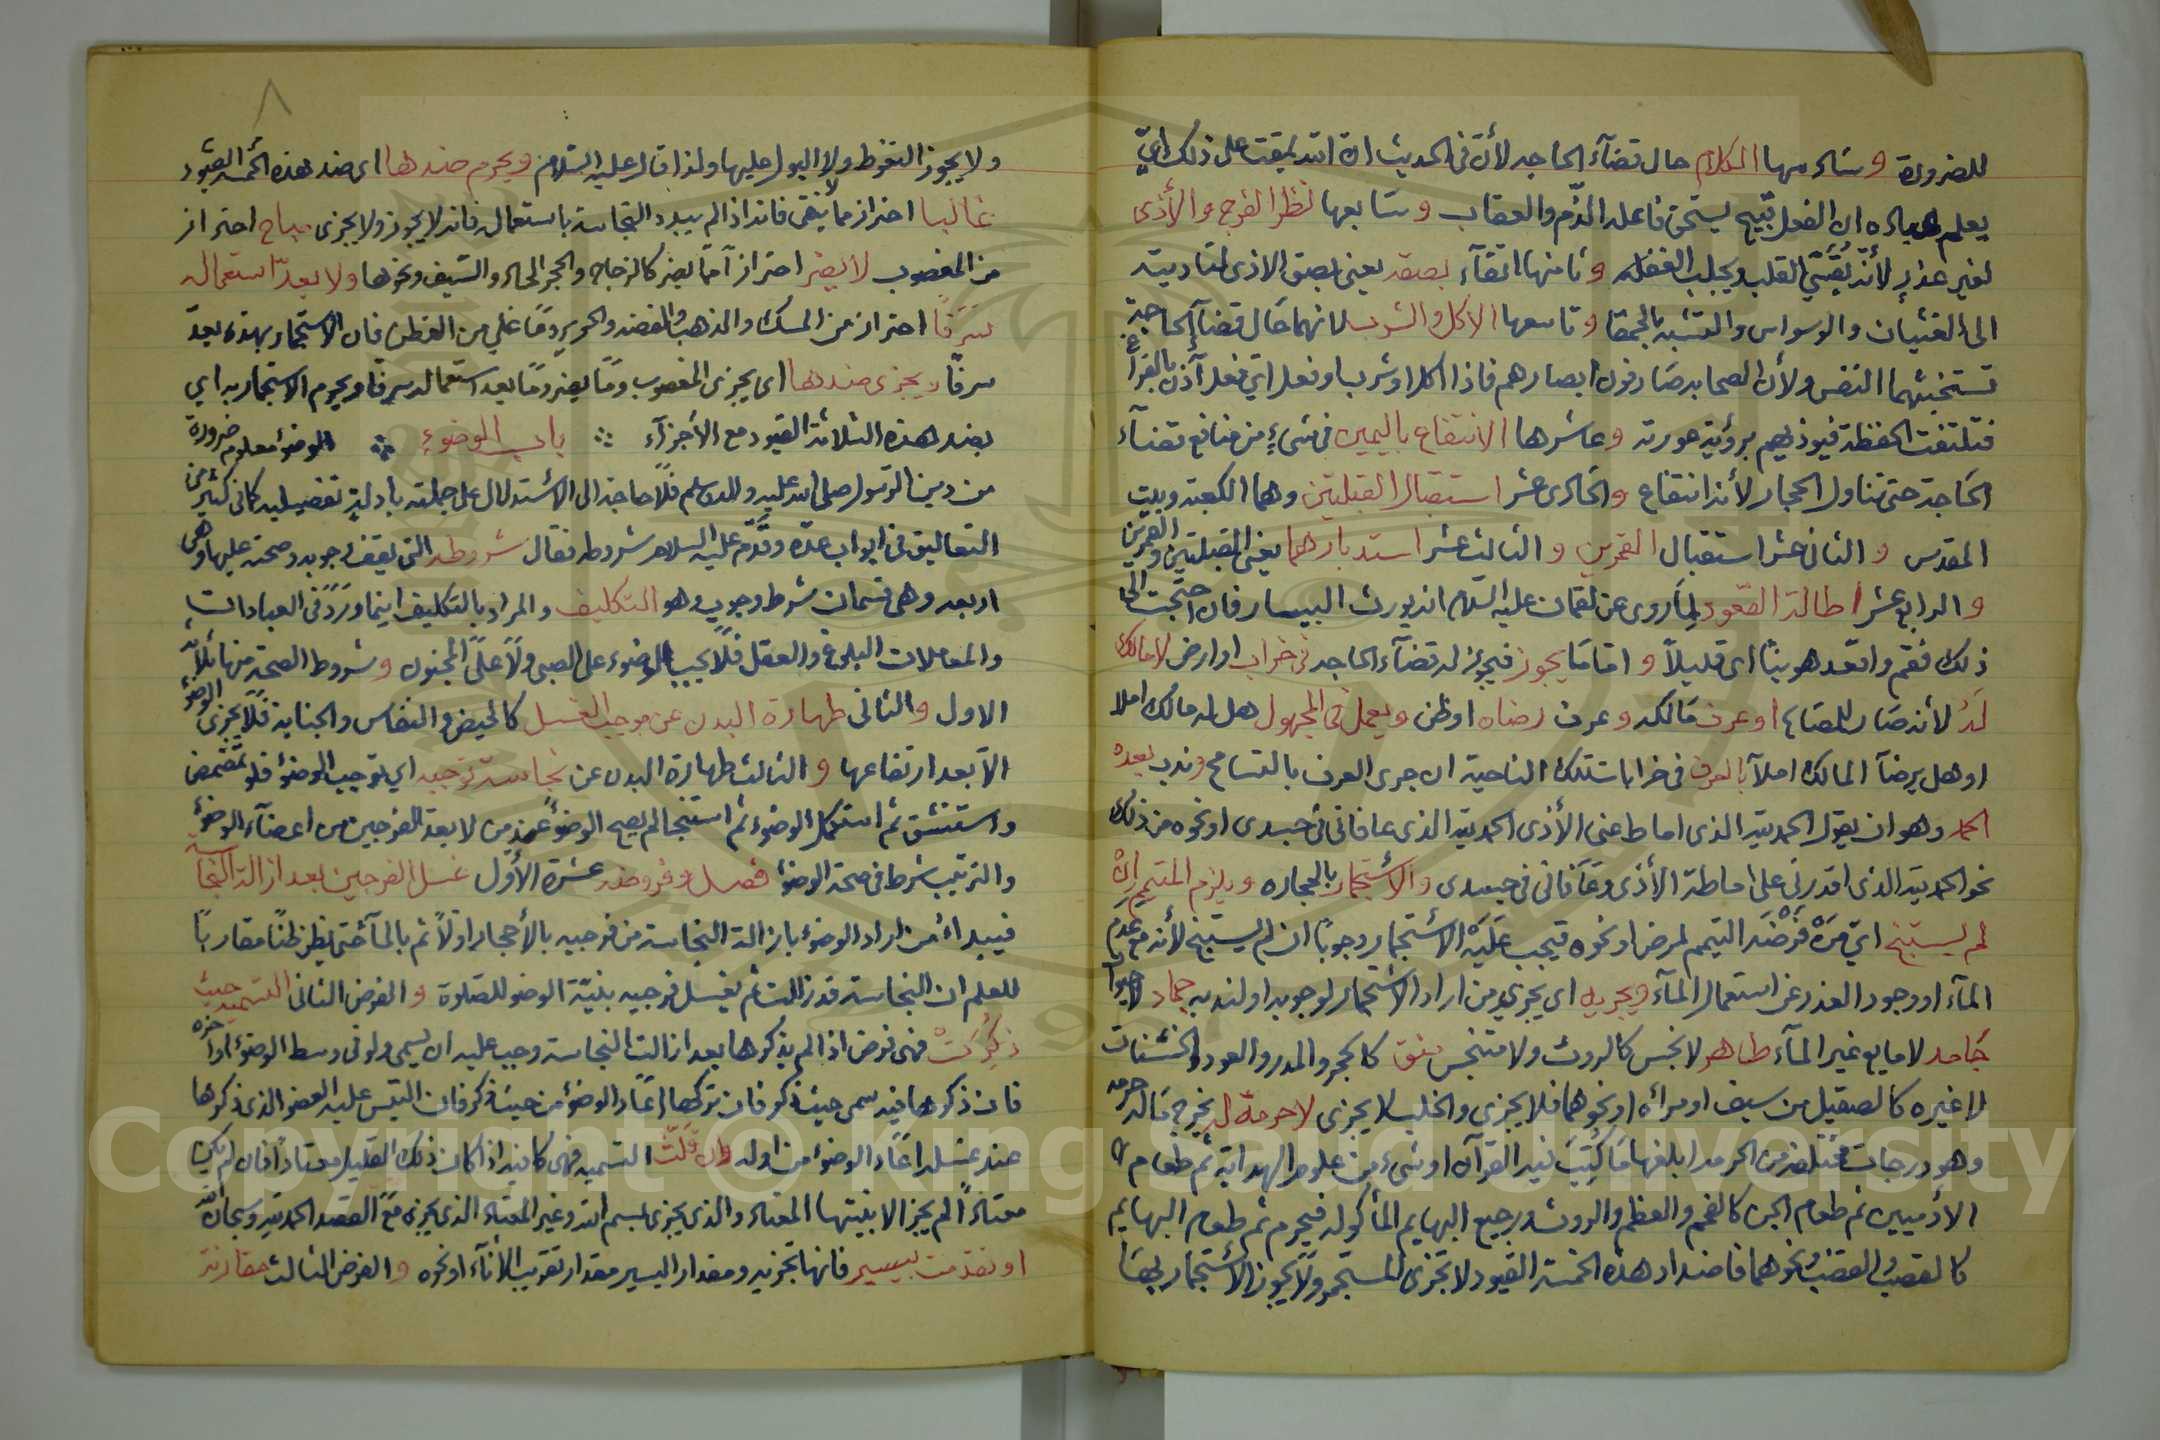 للضرورة وسادسها الكلام حال قضآء الحاجه لأن فى الحديث ان الله يمقت على ذلك اي
يعلم عباده ان الفعل قبيح يستحق فاعله الذّم والعقاب وسابعها نظر الفرج والأذى
لغير عذر لأنه يُقَسّي القلب ويجلب الغفله وثامنها اتقآء بصقه يعني بصق الاذى لتاديته
الى الغثيان والوسواس والتشبه بالحمقا وتاسعها الأكل والشرب لانهما حال قضآء الحاجة
تستخبثهما النفس ولأن الصحابه صارفون ابصارهم فاذا اكل او شرب او فعل اي فعل آذن بالفراغ
فتلتفت الحفظة فيؤذيهم برؤية عورته وعاشرها الانتفاع باليمين فى شيء من منافع قضآء
الحاجة حتى تناول الحجار لأنه انتفاع والحادى عشر استقبال القبلتين وهما الكعبة وبيت
المقدس والثانى عشر استقبال القمرين والثالث عشر استدبارهما يعني القبلتين والقمرين
والرابع عشر اطالة القعود لِمَا روى عن لقمان عليه السّلام انه يورث البيسار فان احتجت الى
ذلك فقم واقعد هوينًا اى قليلاً واما مَا يجوز فيجوز له قضآء الحاجه فى خراب او ارض لا مالك
لهُ لأنه صَار للمصالح او عرف مَالكه وعرف رضاه او ظن ويعمل في المجهول هل له مالك ام لا
او هل يرضآ المالك ام لآ بالعرف فى خرابات تلك الناحية ان جرى العرف بالتسامح وندب بعده
الحمد وهو ان يقول الحمد لله الذى اماط عني الأذى الحمد لله الذى عافانى فى جسدى او نحوه من ذلك
نحو الحمد لله الذى اقدرنى على اماطة الأذى وعَافانى فى جسدى والاستجمار بالحجاره ويلزم المتيمم إنْ
لم يستنج اي مَنْ فَرْضَه التيمم لمرض او نحوه فيجب عَلَيْه الاستجمار وجوبًا ان لم يستنج لأنه مع عدم
المآء او وجود العذر عن استعمال المآء ويجزيه اى يجزي من اراد الاستجمار لوجوبه او لندبه جماد لا حيوان
جَامد لا مايع غير المآء طاهر لا نجس كالروث ولا متنجس منق كالحجر والمدر والعود والخشنات
لا غيره كالصقيل من سيف او مرأه او نحوهما فلا يجزى والخلب لا يجزى لا حرمة له يخرج مَا له حرمه
وهو درجات مختلفه من الحرمه ابلغها مَا كُتِبَ فيه القرآن او شىء من علوم الهدايه ثم طعام
الأدميين ثم طعام الجن كالفحم والعظم والروث ورجيع البهايم المأكوله فيحرم ثم طعام البهايم
كالقصب والقضب ونحوهما فاضداد هذه الخمسة القيود لا تجزى المستجمر ولا يجوز الاستجمار بها
٨
ولا يجوز التغوط ولا البول عليها ولذا قال عليه السّلام ويحرم ضدها اى ضد هذه الخمسة القيود
غالبا احتراز مما لا ينقى فانه اذا لم يبدد النجاسة باستعماله فانه لا يجوز ولا يجزى مباح احتراز
من المغصوب لا يضر احترازاً مما يضر كالزجاج والحجر الحاد والسّيف ونحوها ولا يعدّ استعماله
سَرَفًا احتراز من المسك والذهب والفضه والحرير ومَا غلي من القطن فان الاستجمار بهذه يعدّ
سرفًا ويجزى ضدها اى يجزى المغصوب ومَا يضر ومَا يعد استعماله سرفًا ويحرم الاستجمار به اي
بضد هذه الثلاثة القيود مع الأجزآء باب الوضوء الوضؤ معلوم ضرورة
من دين الرّسول صلى الله عليه واله وسلم فلا حاجة الى الاستدلال على جملته بادلةٍ تفصيليه كما فى كثير من
التعاليق فى ابواب عدّه وقدّم عليه السلام شروطه فقال شروطه التى يقف وجوبه وصحته عليها وهى
اربعه وهى قسمان شرط وجوب وهو التكليف والمراد بالتكليف اينما وَرَدَ فى العبادات
والمعاملات البلوغ والعقل فلا يجب الوضوء على الصبى ولا على المجنون وشروط الصحة منها ثلاثه
الاول والثانى طهارة البدن عن موجب الغسل كالحيض والنفاس والجنابة فلا يجزى الوضؤ
الا بعد ارتفاعها والثالث طهارة البدن عن نجاسة توجبه اي توجب الوضؤ فلو تمضمض
واستنشق ثم استكمل الوضوء ثم استنجا لم يصح الوضؤ عند من لا يعد الفرجين من اعضآء الوضؤ
والترتيب شرط فى صحة الوضؤ فصل وفروضه عشرة الأول غسل الفرجين بعد ازالة النجاسة
فيبداء من اراد الوضؤ بازالة النجاسة من فرجيه بالأحجار اولاً ثم بالمآء حتى يظن ظنًا مقاربًا
للعلم ان النجاسة قد زالت ثم يغسل فرجيه بنيّة الوضو للصّلوة والفرض الثانى التسميه حيث
ذُكِرَتْ فهى فرض اذا لم يذكرها بعد ازالة النجاسة وجب عليه ان يسمى ولو فى وسط الوضوء او آخره
فان ذكرها فيه سمى حيث ذكر فان تركها اعَاد الوضؤ من حيث ذكر فان التبس عليه العضو الذى ذكرها
عند غسله اعَاد الوضؤ من اوله وان قَلّتْ التسميه فهى كافية اذا كان ذلك القليل معتادًا فان لم يكن
معتادًا لم يجز الا بنيتها المعتاد والذى يجزى بسم الله وغير المعتاد الذى يجزى مَعَ القصد الحمد لله وسبحان الله
او تقدمت بيسير فانها تجزيه ومقدار اليسير مقدار تقريب الأنآء او نحوه والفرض الثالث مقارنة
Copyright © King Saud University